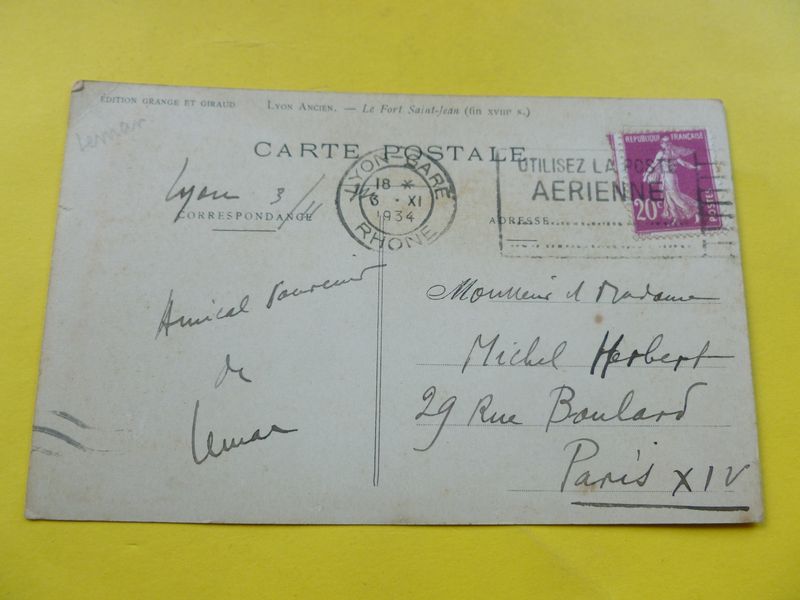 ÉDITION GRANGE ET GIRAUD
LYON ANCIEN. — Le Fort Saint-Jean (fin XVIIIe s.)
Lemar
CARTE POSTALE
CORRESPONDANCE
ADRESSE
LYON GARE
18 *
6 · XI
1934
RHONE
UTILISEZ LA POSTE
AERIENNE
REPUBLIQUE FRANÇAISE
20c
POSTES
Lyon 3/11
Amical souvenir
de
Lemar
Monsieur et Madame
Michel Herbert
29 Rue Boulard
Paris XIV